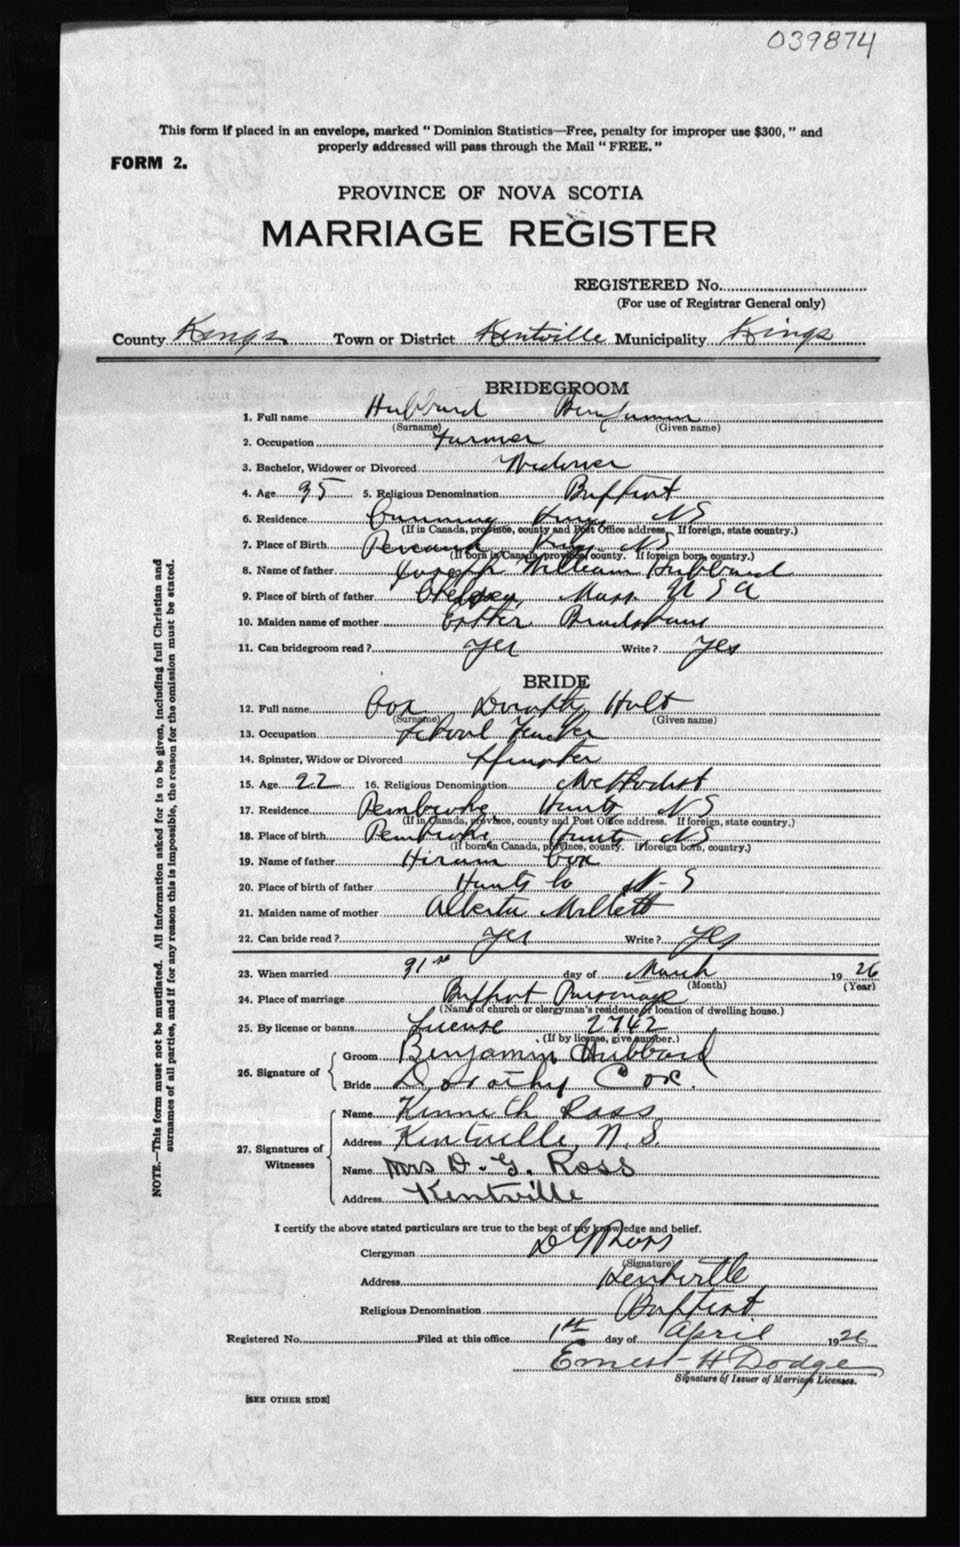 039874
This form if placed in an envelope, marked "Dominion Statistics—Free, penalty for improper use $300," and
properly addressed will pass through the Mail "FREE."
FORM 2.
PROVINCE OF NOVA SCOTIA
MARRIAGE REGISTER
REGISTERED No.
(For use of Registrar General only)
County Kings Town or District Kentville Municipality Kings
BRIDEGROOM
1. Full name Hubbard Benjamin
(Surname) (Given name)
2. Occupation Farmer
3. Bachelor, Widower or Divorced Widower
4. Age 35 5. Religious Denomination Baptist
6. Residence Canning Kings NS
(If in Canada, province, county and Post Office address. If foreign, state country.)
7. Place of Birth Pereau Kings NS
(If born in Canada, province county. If foreign born, country.)
8. Name of father Joseph William Hubbard
9. Place of birth of father Chelsea, Mass USA
10. Maiden name of mother Esther Bradshaw
11. Can bridegroom read? Yes Write? Yes
BRIDE
12. Full name Cox Dorothy Holt
(Surname) (Given name)
13. Occupation School Teacher
14. Spinster, Widow or Divorced Spinster
15. Age 22 16. Religious Denomination Methodist
17. Residence Pembroke Hants NS
(If in Canada, province, county and Post Office address. If foreign, state country.)
18. Place of birth Pembroke Hants NS
(If born in Canada, province, county. If foreign born, country.)
19. Name of father Hiram Cox
20. Place of birth of father Hants Co N-S
21. Maiden name of mother Alberta Millett
22. Can bride read? Yes Write? Yes
23. When married 31st day of March 1926
(Month) (Year)
24. Place of marriage Baptist Parsonage
(Name of church or clergyman's residence or location of dwelling house.)
25. By license or banns License 2742
(If by license, give number.)
26. Signature of
Groom Benjamin Hubbard
Bride Dorothy Cox.
27. Signatures of Witnesses
Name Kenneth Ross
Address Kentville, N.S.
Name Mrs D. G. Ross
Address Kentville
I certify the above stated particulars are true to the best of my knowledge and belief.
Clergyman D G Ross
(Signature)
Address Kentville
Religious Denomination Baptist
Registered No. Filed at this office 1st day of April 1926
Ernest H Dodge
Signature of Issuer of Marriage Licenses.
[SEE OTHER SIDE]
NOTE.—This form must not be mutilated. All information asked for is to be given, including full Christian and
surnames of all parties, and if for any reason this is impossible, the reason for the omission must be stated.